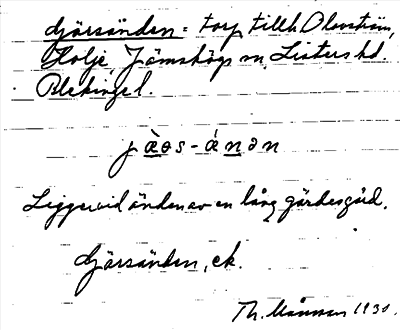 djärsänden = torp tillh. Olovström,
Holje Jämshögs sn, Listers hd.
Blekinge l.
jæ̀ɵs-ánən
Ligger vid änden av en lång gärdesgård.
djärsänden, ek.
Th. Månsson 1930.